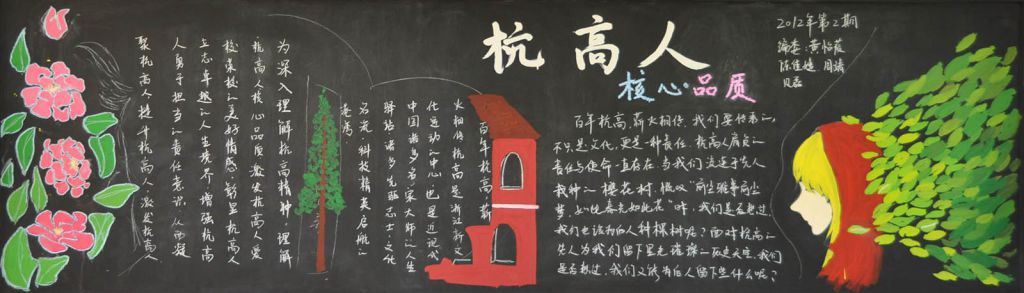 杭高人
核心品质
2012年第2期
编委：黄怡
陈佳婕 周
百年杭高，薪火相传，我们要传承的，
不只是文化，更是一种责任。杭高人肩负的
责任与使命一直存在。当我们流连于先人
栽种的樱花树
梦，如今春光如此浓”时，我们是否想过，
我们也该和后人种棵树呢？面对杭高的
先人为我们留下星光璀璨的一片天空，我们
是否想过，我们又能为后人留下些什么呢？
百年杭高，薪
火相传。杭高是浙江新文
化运动的中心，也是近现代
中国诸多名家大师的人生
驿站，诸多先驱志士的文化
苑，科技精英启航的
港湾。
为深入理解杭高精神，理解
杭高人核心品质，激发杭高人爱
校荣校的美好情感，彰显杭高人
立志卓越的人生境界，增强杭高
人勇于担当的责任意识，从而凝
聚杭高人，提升杭高人，激发杭高人